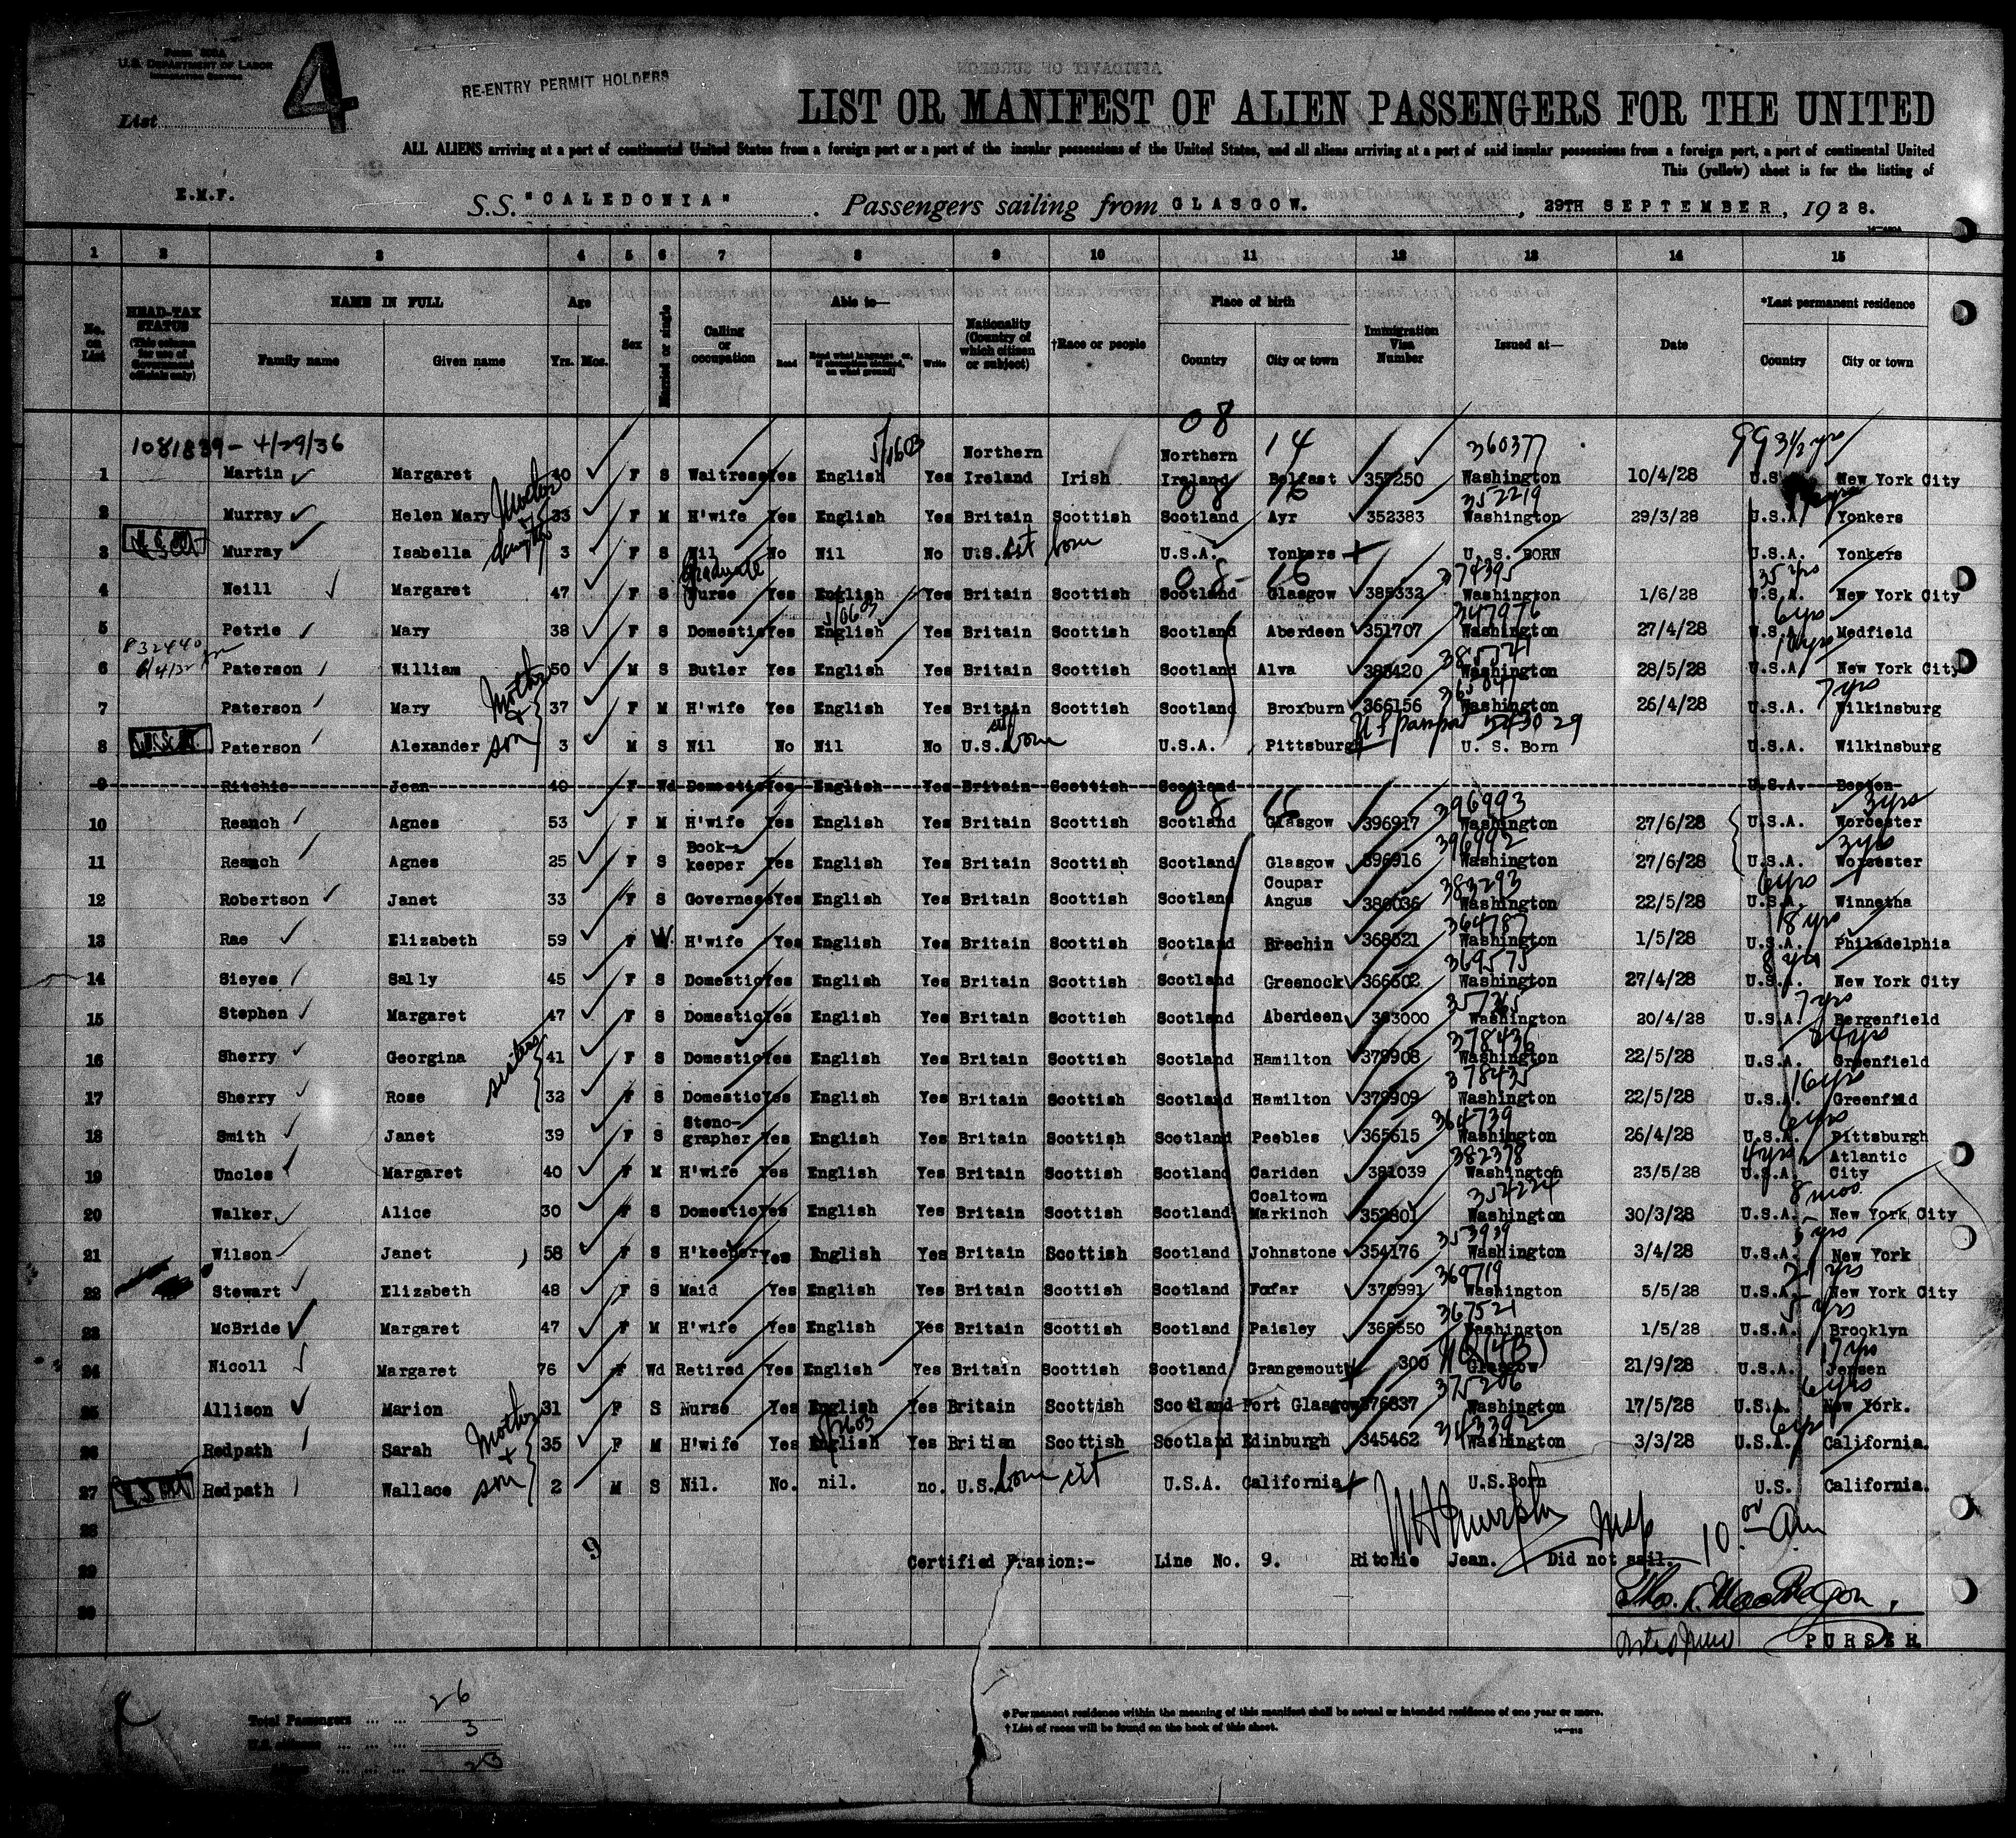 Form 500A
U.S. DEPARTMENT OF LABOR
IMMIGRATION SERVICE
List 4
RE-ENTRY PERMIT HOLDERS
LIST OR MANIFEST OF ALIEN PASSENGERS FOR THE UNITED
ALL ALIENS arriving at a port of continental United States from a foreign port or a port of the insular possessions of the United States, and all aliens arriving at a port of said insular possessions from a foreign port, a port of continental United
This (yellow) sheet is for the listing of
E.M.F.
S.S. "CALEDONIA" . Passengers sailing from GLASGOW. , 29TH SEPTEMBER, 1928.
1 2 3 4 5 6 7 8 9 10 11 12 13 14 15
No. on List
HEAD-TAX STATUS (This column for use of Government officials only)
NAME IN FULL Family name Given name
Age Yrs. Mos.
Sex
Married or single
Calling or occupation
Able to— Read Read what language or, if exemption claimed, on what ground Write
Nationality (Country of which citizen or subject)
†Race or people
Place of birth Country City or town
Immigration Visa Number
Issued at—
Date
*Last permanent residence Country City or town
1081839 - 4/29/36 08 14 360377 99 3½ yrs
1 Martin Margaret 40 F S Waitress Yes English Yes Northern Ireland Irish Northern Ireland Belfast 357250 Washington 10/4/28 U.S New York City
08 352219
2 Murray Helen Mary 33 F M H'wife Yes English Yes Britain Scottish Scotland Ayr 352383 Washington 29/3/28 U.S.A. Yonkers
Mother & daughter
3 Murray Isabella 3 F S Nil No Nil No U.S. cit born U.S.A. Yonkers U. S. BORN U.S.A. Yonkers
Graduate 08 - 16 374395 35 yrs
4 Neill Margaret 47 F S Nurse Yes English Yes Britain Scottish Scotland Glasgow 385332 Washington 1/6/28 U.S.A. New York City
347976 6 yrs
5 Petrie Mary 38 F S Domestic Yes English Yes Britain Scottish Scotland Aberdeen 351707 Washington 27/4/28 U.S. Medfield
832440 6/4/32
6 Paterson William 50 M S Butler Yes English Yes Britain Scottish Scotland Alva 388420 Washington 28/5/28 U.S.A. New York City
Mother & son 7 yrs
7 Paterson Mary 37 F M H'wife Yes English Yes Britain Scottish Scotland Broxburn 366156 Washington 26/4/28 U.S.A. Wilkinsburg
cit born U S passport 543029
8 Paterson Alexander 3 M S Nil No Nil No U.S.A. U.S.A. Pittsburg U. S. Born U.S.A. Wilkinsburg
9 Ritchie Jean 40 F Wd Domestic Yes English Yes Britain Scottish Scotland U.S.A. Boston
08 16 396993 3 yrs
10 Reanch Agnes 53 F M H'wife Yes English Yes Britain Scottish Scotland Glasgow 396917 Washington 27/6/28 U.S.A. Worcester
396992 3 yrs
11 Reanch Agnes 25 F S Book-keeper Yes English Yes Britain Scottish Scotland Glasgow 396916 Washington 27/6/28 U.S.A. Worcester
383293 6 yrs
12 Robertson Janet 33 F S Governess Yes English Yes Britain Scottish Scotland Coupar Angus 386036 Washington 22/5/28 U.S.A. Winnetha
364787 18 yrs
13 Rae Elizabeth 59 F W. H'wife Yes English Yes Britain Scottish Scotland Brechin 368521 Washington 1/5/28 U.S.A. Philadelphia
369575 8 yrs
14 Sieyes Sally 45 F S Domestic Yes English Yes Britain Scottish Scotland Greenock 366502 Washington 27/4/28 U.S.A. New York City
7 yrs
15 Stephen Margaret 47 F S Domestic Yes English Yes Britain Scottish Scotland Aberdeen 363000 Washington 20/4/28 U.S.A. Bergenfield
sisters 378436
16 Sherry Georgina 41 F S Domestic Yes English Yes Britain Scottish Scotland Hamilton 379908 Washington 22/5/28 U.S.A. Greenfield
378435 16 yrs
17 Sherry Rose 32 F S Domestic Yes English Yes Britain Scottish Scotland Hamilton 379909 Washington 22/5/28 U.S.A. Greenfield
364739 6 yrs
18 Smith Janet 39 F S Steno-grapher Yes English Yes Britain Scottish Scotland Peebles 365615 Washington 26/4/28 U.S.A. Pittsburgh
382378 4 yrs
19 Uncles Margaret 40 F M H'wife Yes English Yes Britain Scottish Scotland Cariden 381039 Washington 23/5/28 U.S.A. Atlantic City
354224 8 mos.
20 Walker Alice 30 F S Domestic Yes English Yes Britain Scottish Scotland Coaltown Markinch 352801 Washington 30/3/28 U.S.A. New York City
353939 5 yrs
21 Wilson Janet 58 F S H'keeper Yes English Yes Britain Scottish Scotland Johnstone 354176 Washington 3/4/28 U.S.A. New York
369719 21 yrs
22 Stewart Elizabeth 48 F S Maid Yes English Yes Britain Scottish Scotland Fofar 370991 Washington 5/5/28 U.S.A. New York City
367521 5 yrs
23 McBride Margaret 47 F M H'wife Yes English Yes Britain Scottish Scotland Paisley 368550 Washington 1/5/28 U.S.A. Brooklyn
17 yrs
24 Nicoll Margaret 76 F Wd Retired Yes English Yes Britain Scottish Scotland Grangemouth 300 Glasgow 21/9/28 U.S.A. Jensen
375206 6 yrs
25 Allison Marion 31 F S Nurse Yes English Yes Britain Scottish Scotland Port Glasgow 376837 Washington 17/5/28 U.S.A. New York.
Mother + son 343392 6 yrs
26 Redpath Sarah 35 F M H'wife Yes English Yes Britian Scottish Scotland Edinburgh 345462 Washington 3/3/28 U.S.A. California.
27 Redpath Wallace 2 M S Nil. No. nil. no. U.S. born cit U.S.A. California U.S.Born U.S. California.
28 Insp 10 00 Am
29 9 Certified Erasion:- Line No. 9. Ritchie Jean. Did not sail.
30
PURSER
Total Passengers ... ... 26
U.S. citizens ... ... ... 3
... ... ... 23
* Permanent residence within the meaning of this manifest shall be actual or intended residence of one year or more.
† List of races will be found on the back of this sheet.